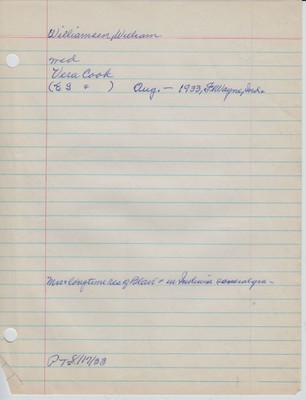 Williamsen, William
md
Vera Cook
(E S + ) Aug. — 1933, Ft Wayne, Ind.
Mrs longtime res of Blair + in Indiana several yrs —
PT 8/17/33